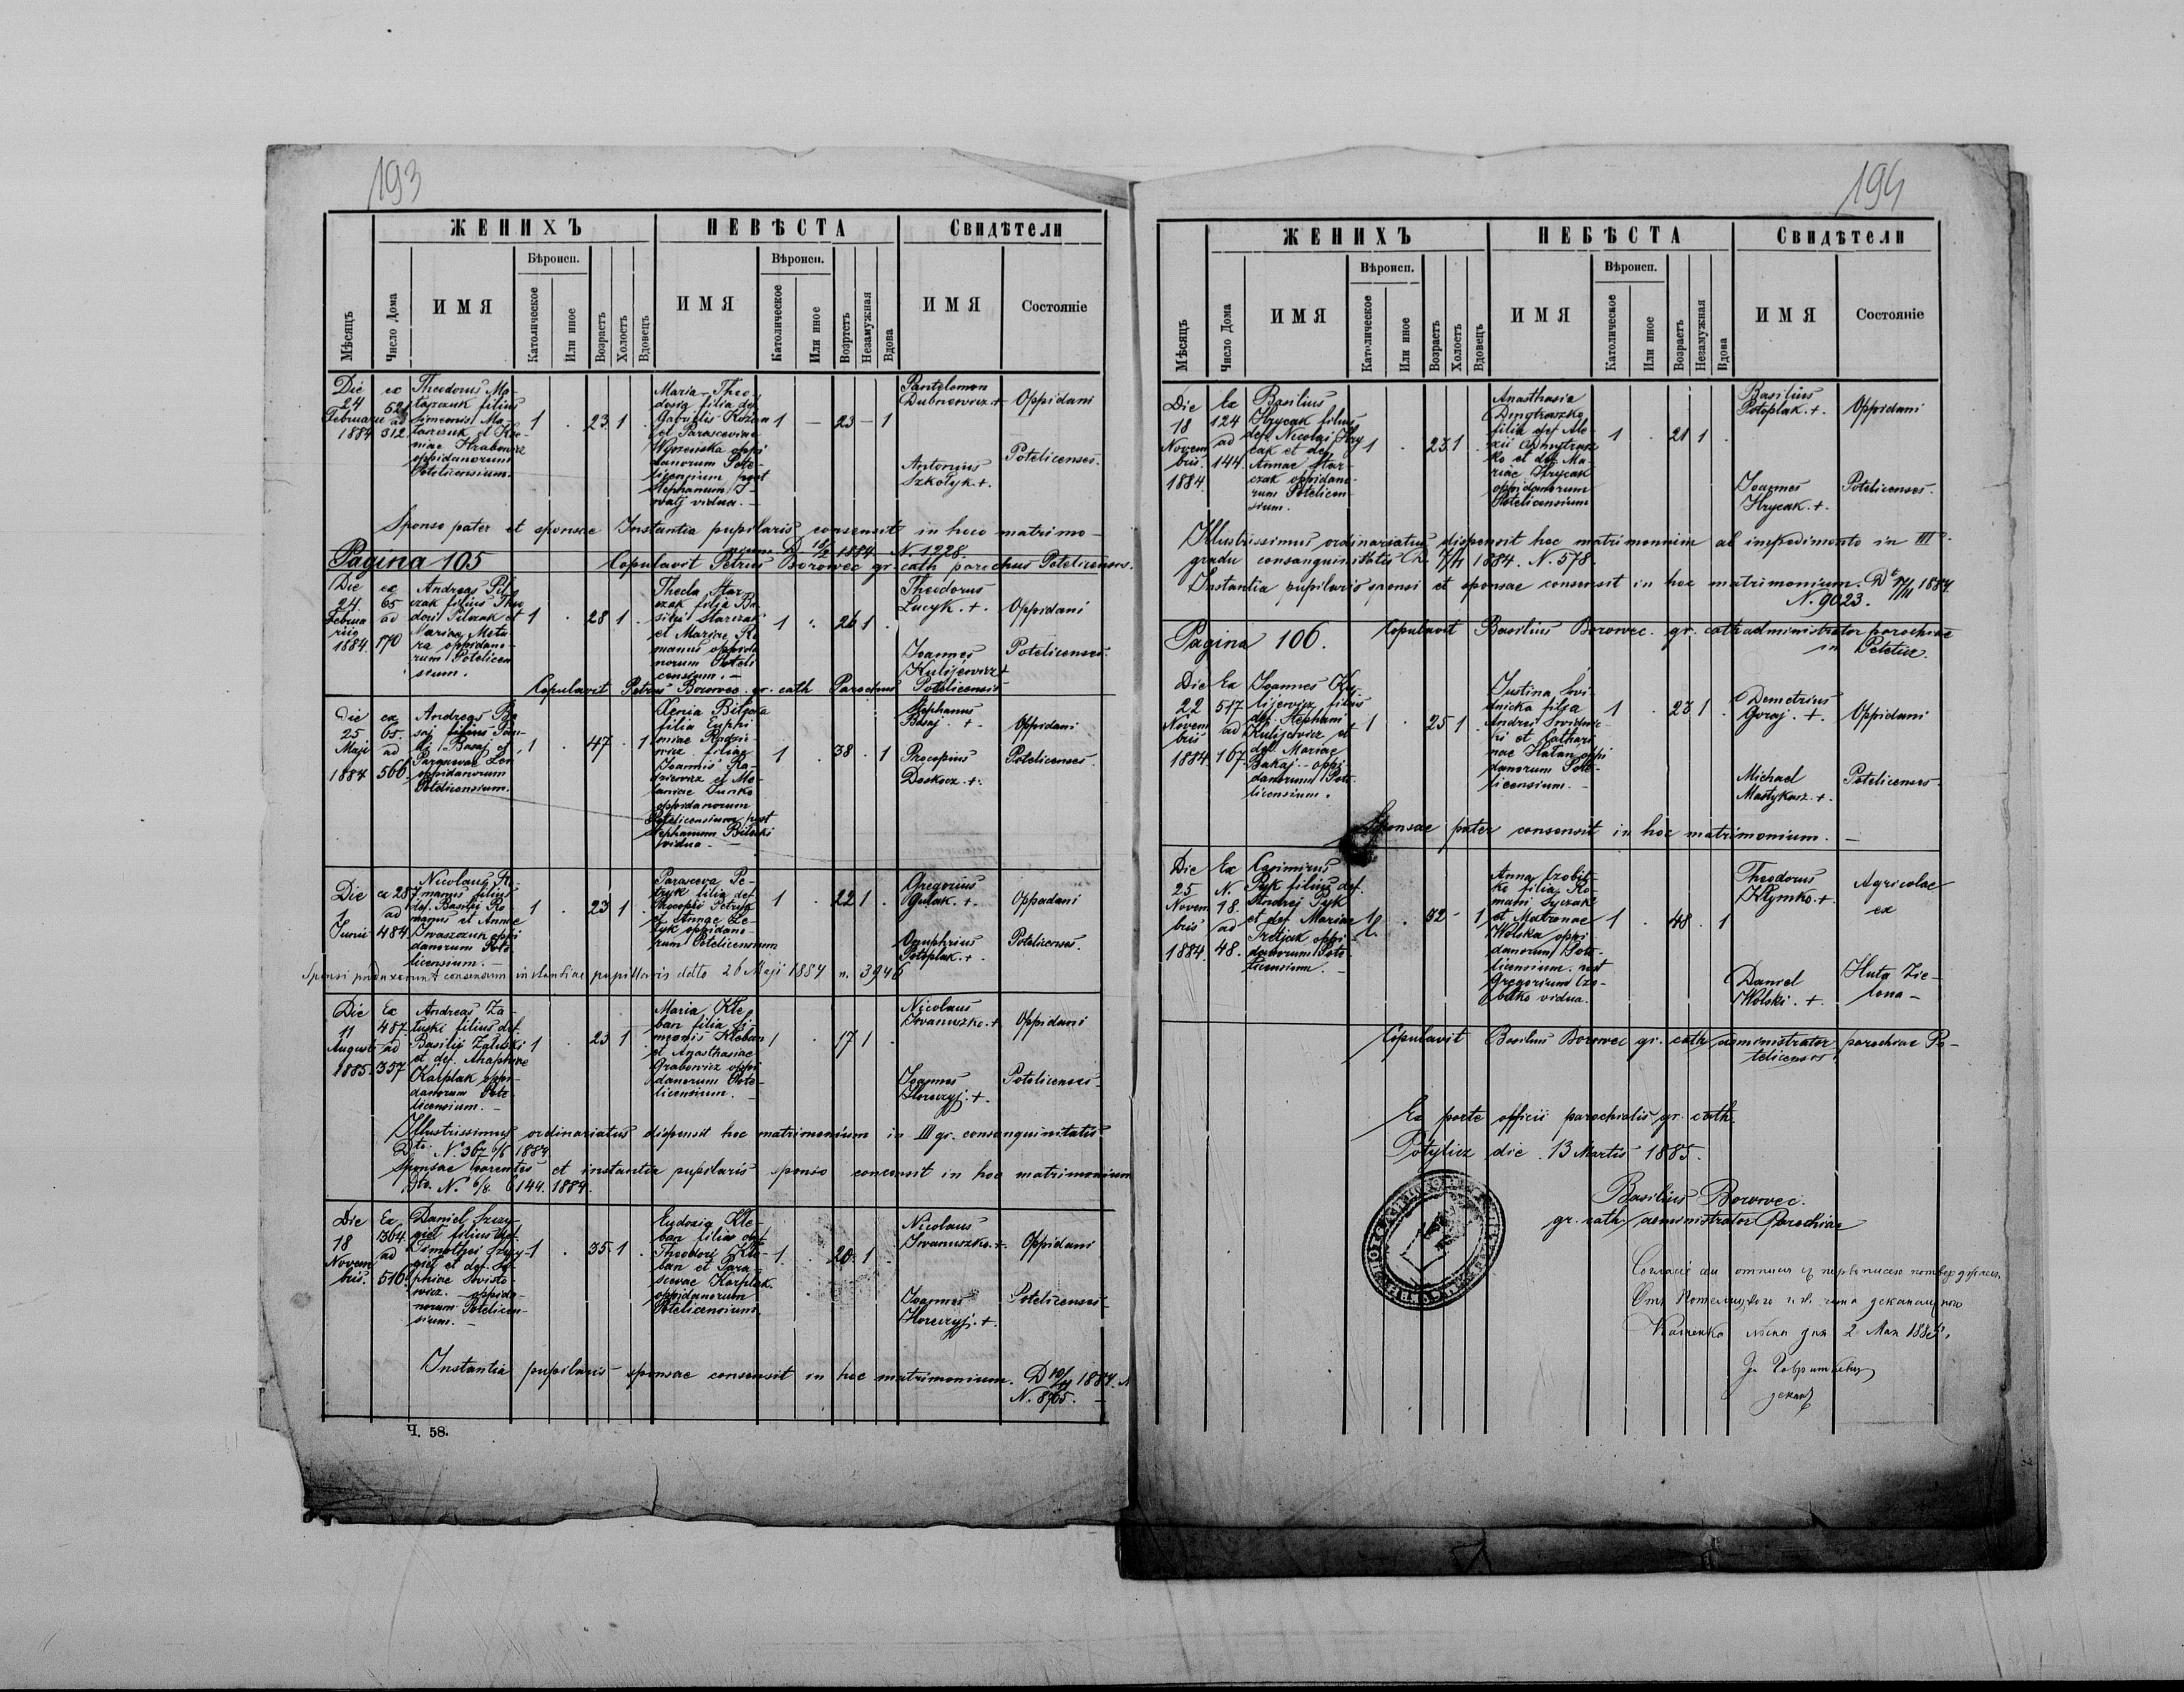 193
ЖЕНИХЪ
НЕВѢСТА
Свидѣтели
Мѣсяцъ
Число Дома
ИМЯ
Вѣроисп.
Католическое
Или иное
Возрастъ
Холостъ
Вдовецъ
ИМЯ
Вѣроисп.
Католическое
Или иное
Возрастъ
Незамужная
Вдова
ИМЯ
Состоянiе
Die
24
Februarii
1884
ex
521
ad
312
Theodorus Ma-
tarczuk filius
Simeonis Ma-
tarczuk et Xe-
niae Hrabowicz
oppidanorum
Potelicensium.
1 . 23 1 .
Maria Theo-
dosia filia def.
Gabrielis Kozan
et Parascevine
oppi
danorum Pote-
licensium post
Stephanum I-
vidua. –
1 – 23 – 1
Pantelemon
Dubnewicz +
Antonius
Szkolyk. +.
Oppidani
Potelicenses.
Sponso pater et sponsae Instantia pupilaris consensit in hoce matrimo-
nium. D 18/2 1884 N. 1228.
Pagina 105
Copulavit Petrus Borowec gr. cath parochus Potelicenses.
Die
24.
Februa
rii
1884.
ex
65
ad
170
Andreas Pil-
czak filius Theo
dori Pilczak et
Mariae Metu
ra oppidano-
rum Potelicen
sium.
1 . 28 1 .
Thecla Mar
czak filia Ba-
silii Marczak
et Mariae Ro
manus oppida
norum Poteli
censium. –
1 . 26 1 .
Theodorus
Lucyk. +.
Joannes
Kulijewicz +
Oppidani
Potelicenses.
Copulavit Petrus Borowec gr. cath Parochus Potelicensis
Die
25
Maji
1884
ex
65.
ad
566.
Andreas Ba
saj filius Pau-
li Basaj et
Parascevae Len
oppidanorum
Potelicensium.
1 . 47 . 1
Xenia Bilecka
filia Euphi
miae Radzie-
wicz filiae
Joannis Ra-
dziewicz et Me-
laniae Sunko
oppidanorum
Potelicensium post
Stephanum Bilecki
vidua. –
1 . 38 . 1
Stephanus
Basaj. +
Procopius
Deskocz. +.
Oppidani
Potelicenses.
Die
1
Junii
ex 287
ad
484
Nicolaus Ro-
manus filius
def. Basilij Ro-
manus et Annae
Iwaszczuk oppi
danorum Pote
licensium. –
1 . 23 1 .
Parasceva Pe-
tryk filia def.
Procopii Petryk
et Annae Ze-
lyk oppidano-
rum Potelicensium
1 . 22 1 .
Gregorius
Gulak. +.
Onuphrius
Potoplak. +.
Oppidani
Potelicenses.
Sponsi produxerunt consensum instantiae pupillaris ddto 26 Maji 1884 n. 3946
Die
11
Augusti
1885.
Ex
487
ad
357
Andreas Za-
luski filius def.
Basilij Zaluski
et def. Ahaphiae
Karplak oppi-
danorum Pote
licensium. –
1 . 23 1
Maria Kle
ban filia Si
meonis Kleban
et Anasthasiae
Grabowicz oppi
danorum Pote-
licensium. –
1 . 17 1 .
Nicolaus
Iwanuszko. +
Joannes
Horeczyj. +.
Oppidani
Potelicenses –
Illustrissimus ordinariatus dispensit hoc matrimonium in III gr. consanguinitatis
Dto. N. 367 6/8 1884
Sponsae parentes et instantia pupilaris sponso concensit in hoc matrimonium
Dto. N. 6/8. 6144. 1884.
Die
18
Novem
bris.
Ex
364
ad
516
Daniel Szczy-
giel filius def.
Timothei Szczy-
giel et def. So-
phiae Swisto-
wicz. oppida-
norum Potelicen-
sium. –
1 . 35. 1 .
Eudosia Kle-
ban filia def
Theodori Kle-
ban et Para-
scevae Karplak
oppidanorum
Potelicensium.
1 . 20. 1 .
Nicolaus
Iwanuszko. +.
Joannes
Horeczyj. +.
Oppidani
Potelicenses –
Instantia pupilaris sponsae consensit in hoc matrimonium. D 10/11 1884. N
N. 8765. –
Ч. 58.
194
ЖЕНИХЪ
НЕБѢСТА
Свидѣтели
Мѣсяцъ
Число Дома
ИМЯ
Вѣроисп.
Католическое
Или иное
Возрастъ
Холостъ
Вдовецъ
ИМЯ
Вѣроисп.
Католическое
Или иное
Возрастъ
Незамужная
Вдова
ИМЯ
Состоянiе
Die
18
Novem
bris.
1884.
Ex
124
ad
144.
Basilius
Hrycak filius
def. Nicolai Hry
cak et def.
Annae Mar-
czak oppidano-
rum Potelicen
sium.
1 . 23 1 .
Anasthasia
Dmytraszko
filia def Ale-
xii Dmytrasz
ko et def Ma-
riae Hrycak
oppidanorum
Potelicensium
1 . 21 1 .
Basilius
Potoplak. +.
Joannes
Hrycak. +.
Oppidani
Potelicenses.
Illustrissimus ordinariatus dispensit hoc matrimonium ab impedimento in III –
gradu consanguinitatis D. 7/11 1884. N. 578.
Instantia pupilaris sponsi et sponsae consensit in hoc matrimonium. Dt /11 1884.
N. 9023.
Pagina 106.
Copulavit Basilius Borowec. gr. cath administrator parochiae
in Potelicz.
Die
22
Novem
bris
1884
Ex
517
ad
167
Joannes Ku-
lijewicz filius
def. Stephani
Kulijewicz et
def. Mariae
Bakaj – oppi
danorum Pote-
licensium.
1 . 25 1 .
Justina Swi-
dnicka filia
Andrei Swidnic-
ki et Cathari
nae Halan oppi
danorum Pote-
licensium. –
1 . 23 1 .
Demetrius
Goraj. +.
Michael
Mastykasz. +.
Oppidani
Potelicenses
Sponsae pater consensit in hoc matrimonium. –
Die
25
Novem
bris
1884
Ex
N.
18.
ad
48.
Casimirus
Pyk filius def.
Andrej Pyk
et def. Mariae
Tretjak oppi-
danorum Pote
licensium. –
32 – 1
Anna Czobit-
ko filia Ro-
mani Syczak
et Matronae
Wolska oppi
danorum Pote-
licensium. post
Gregorium Czo-
bitko vidua.
1 . 48 . 1
Theodorus
Klymko. +
Daniel
Wolski. +.
Agricolae
ex
Huta Zie-
lona –
Copulavit Basilius Borowec gr. cath administrator parochiae Po-
telicensis
Ex parte officii parochialis gr. cath.
Potylicz die 13 Martis 1885.
Basilius Borowec.
gr. cath administrator Parochiae
2 Мая 1885.